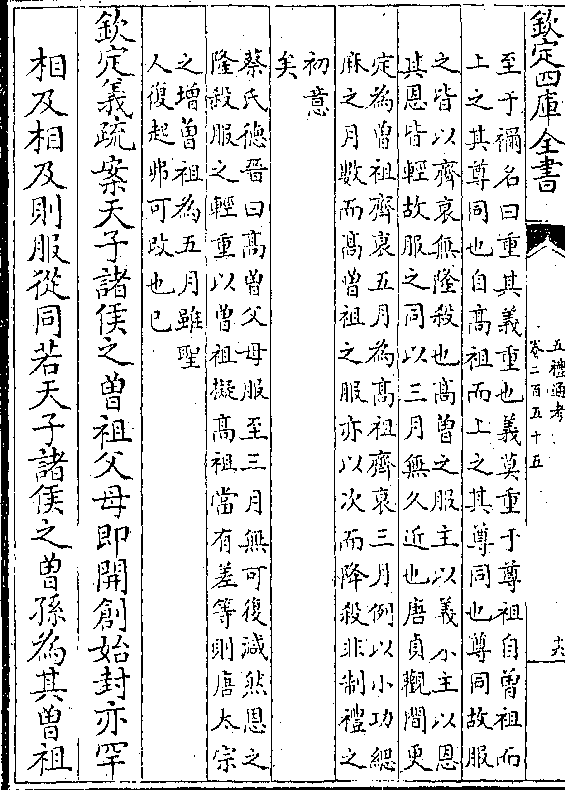 欽定四庫全書
五禮通考
卷二百五十五
十六
至于禰名曰重其義重也義莫重于尊祖自曽祖而
上之其尊同也自髙祖而上之其尊同也尊同故服
之皆以齊衰無隆殺也髙曽之服主以義不主以恩
其恩皆輕故服之同以三月無久近也唐貞觀間更
定為曽祖齊衰五月為髙祖齊衰三月例以小功緦
麻之月數而髙曽祖之服亦以次而降殺非制禮之
初意
矣
蔡氏徳晉曰髙曽父母服至三月無可復減然恩之
隆殺服之輕重以曽祖擬髙祖當有差等則唐太宗
之增曽祖為五月雖聖
人復起弗可改也已
欽定義疏案天子諸侯之曽祖父母即開創始封亦罕
相及相及則服從同若天子諸侯之曽孫為其曽祖